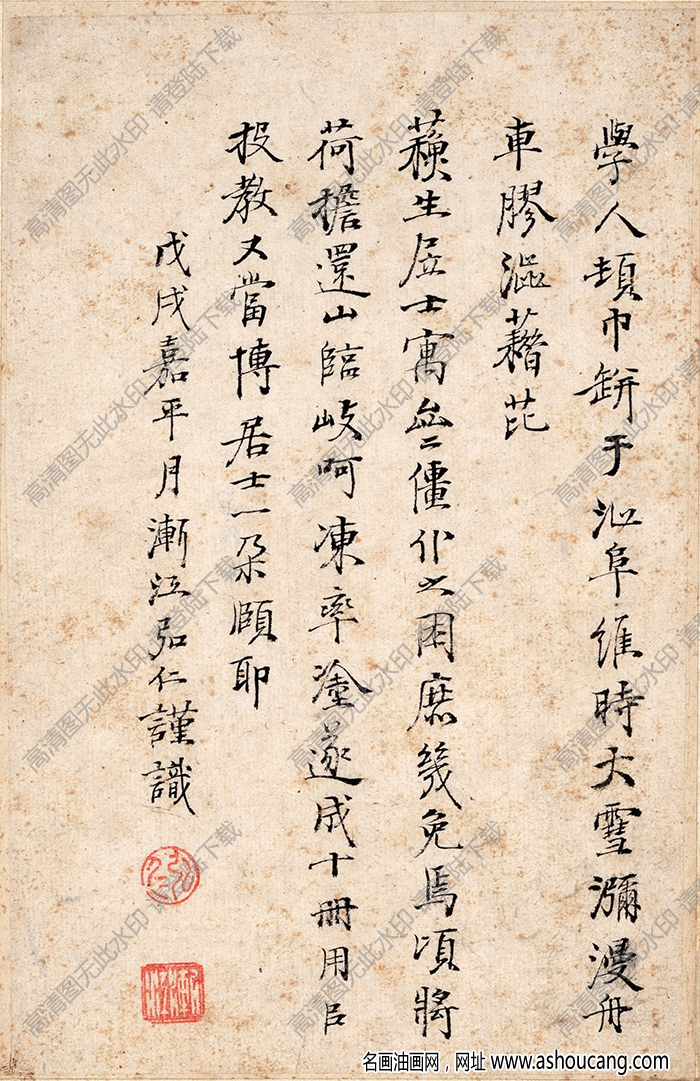 學人頓巾缾于阜維時大雪瀰漫舟
車膠澀藉芘
蘓生居士寓亝僵仆之困庶幾免焉頃將
荷檐還山臨歧呵凍率塗遂成十冊用㠯
投教又當博居士一朵頤耶
戊戌嘉平月漸江弘仁謹識
高清图无此水印 请登陆下载
名画油画网，网址 www.ashoucang.com